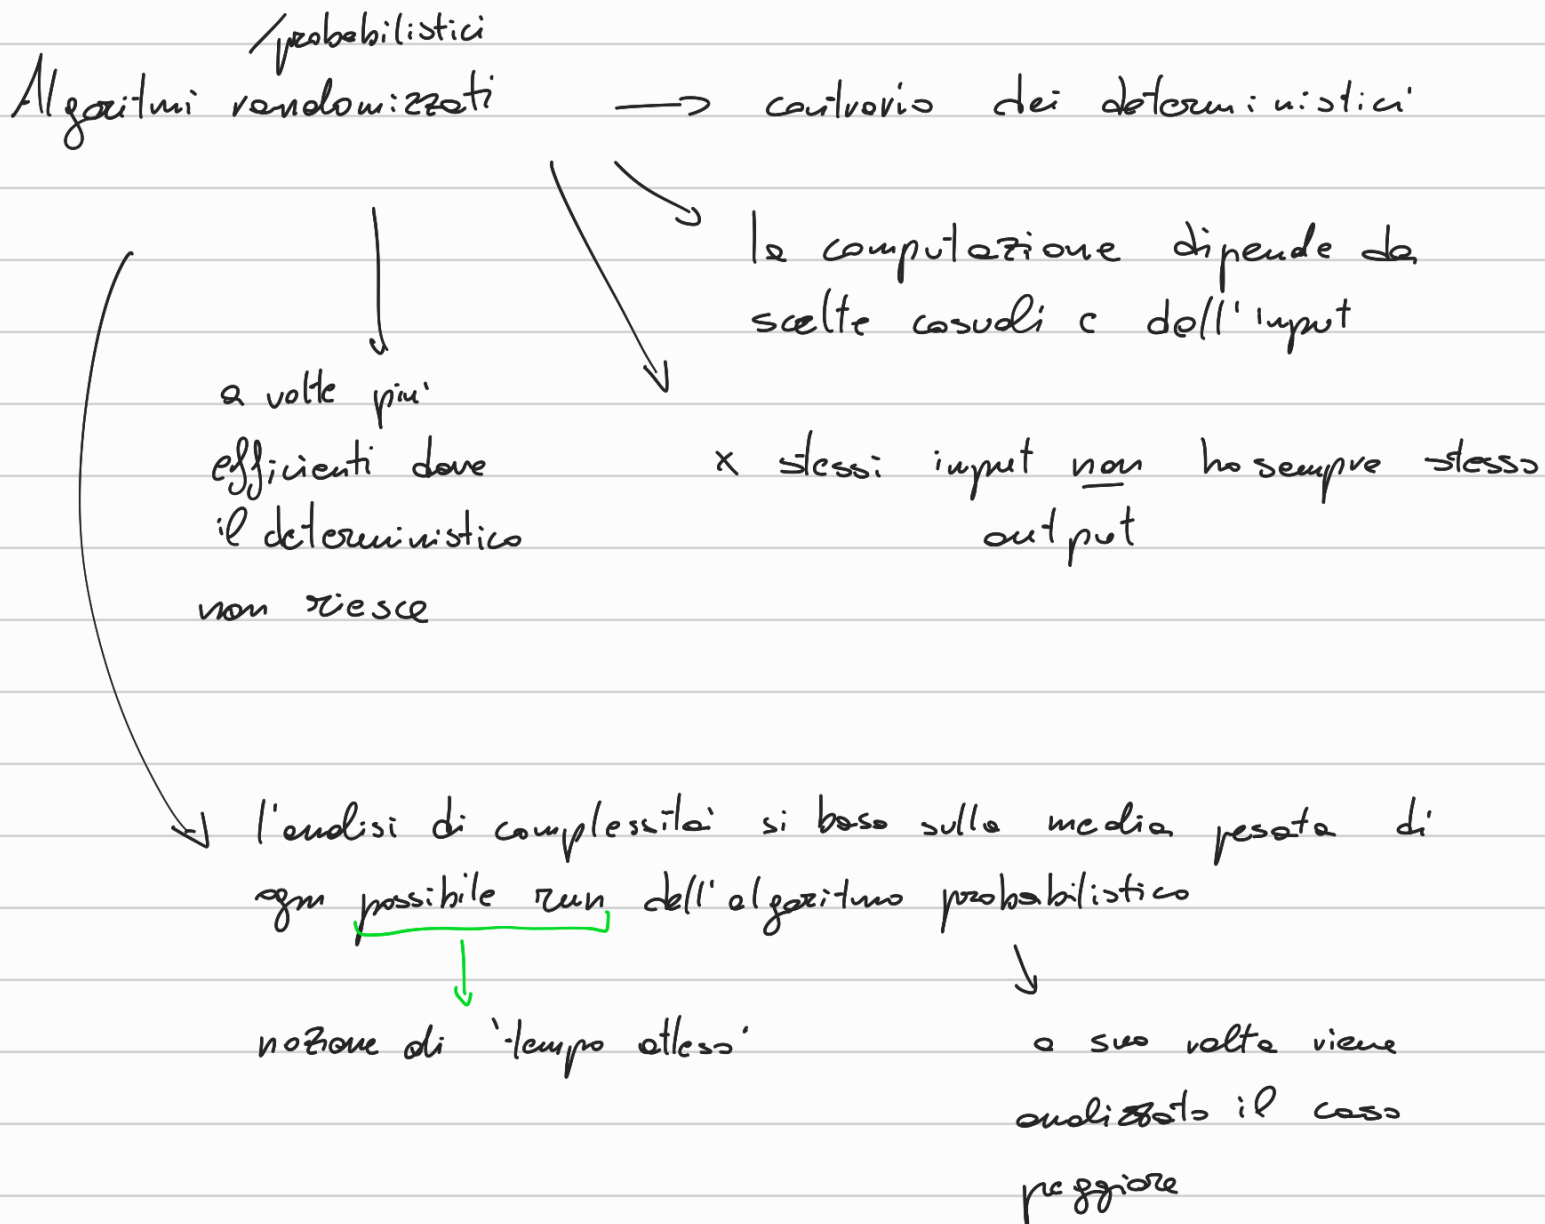 /probabilistici
Algoritmi randomizzati → contrario dei deterministici
la computazione dipende da
scelte casuali e dell'input
a volte più
efficienti dove
il deterministico
non riesce
x stessi input non ho sempre stesso
output
l'analisi di complessità si basa sulla media pesata di
ogni possibile run dell'algoritmo probabilistico
nozione di 'tempo atteso'
a suo volta viene
analizzato il caso
peggiore